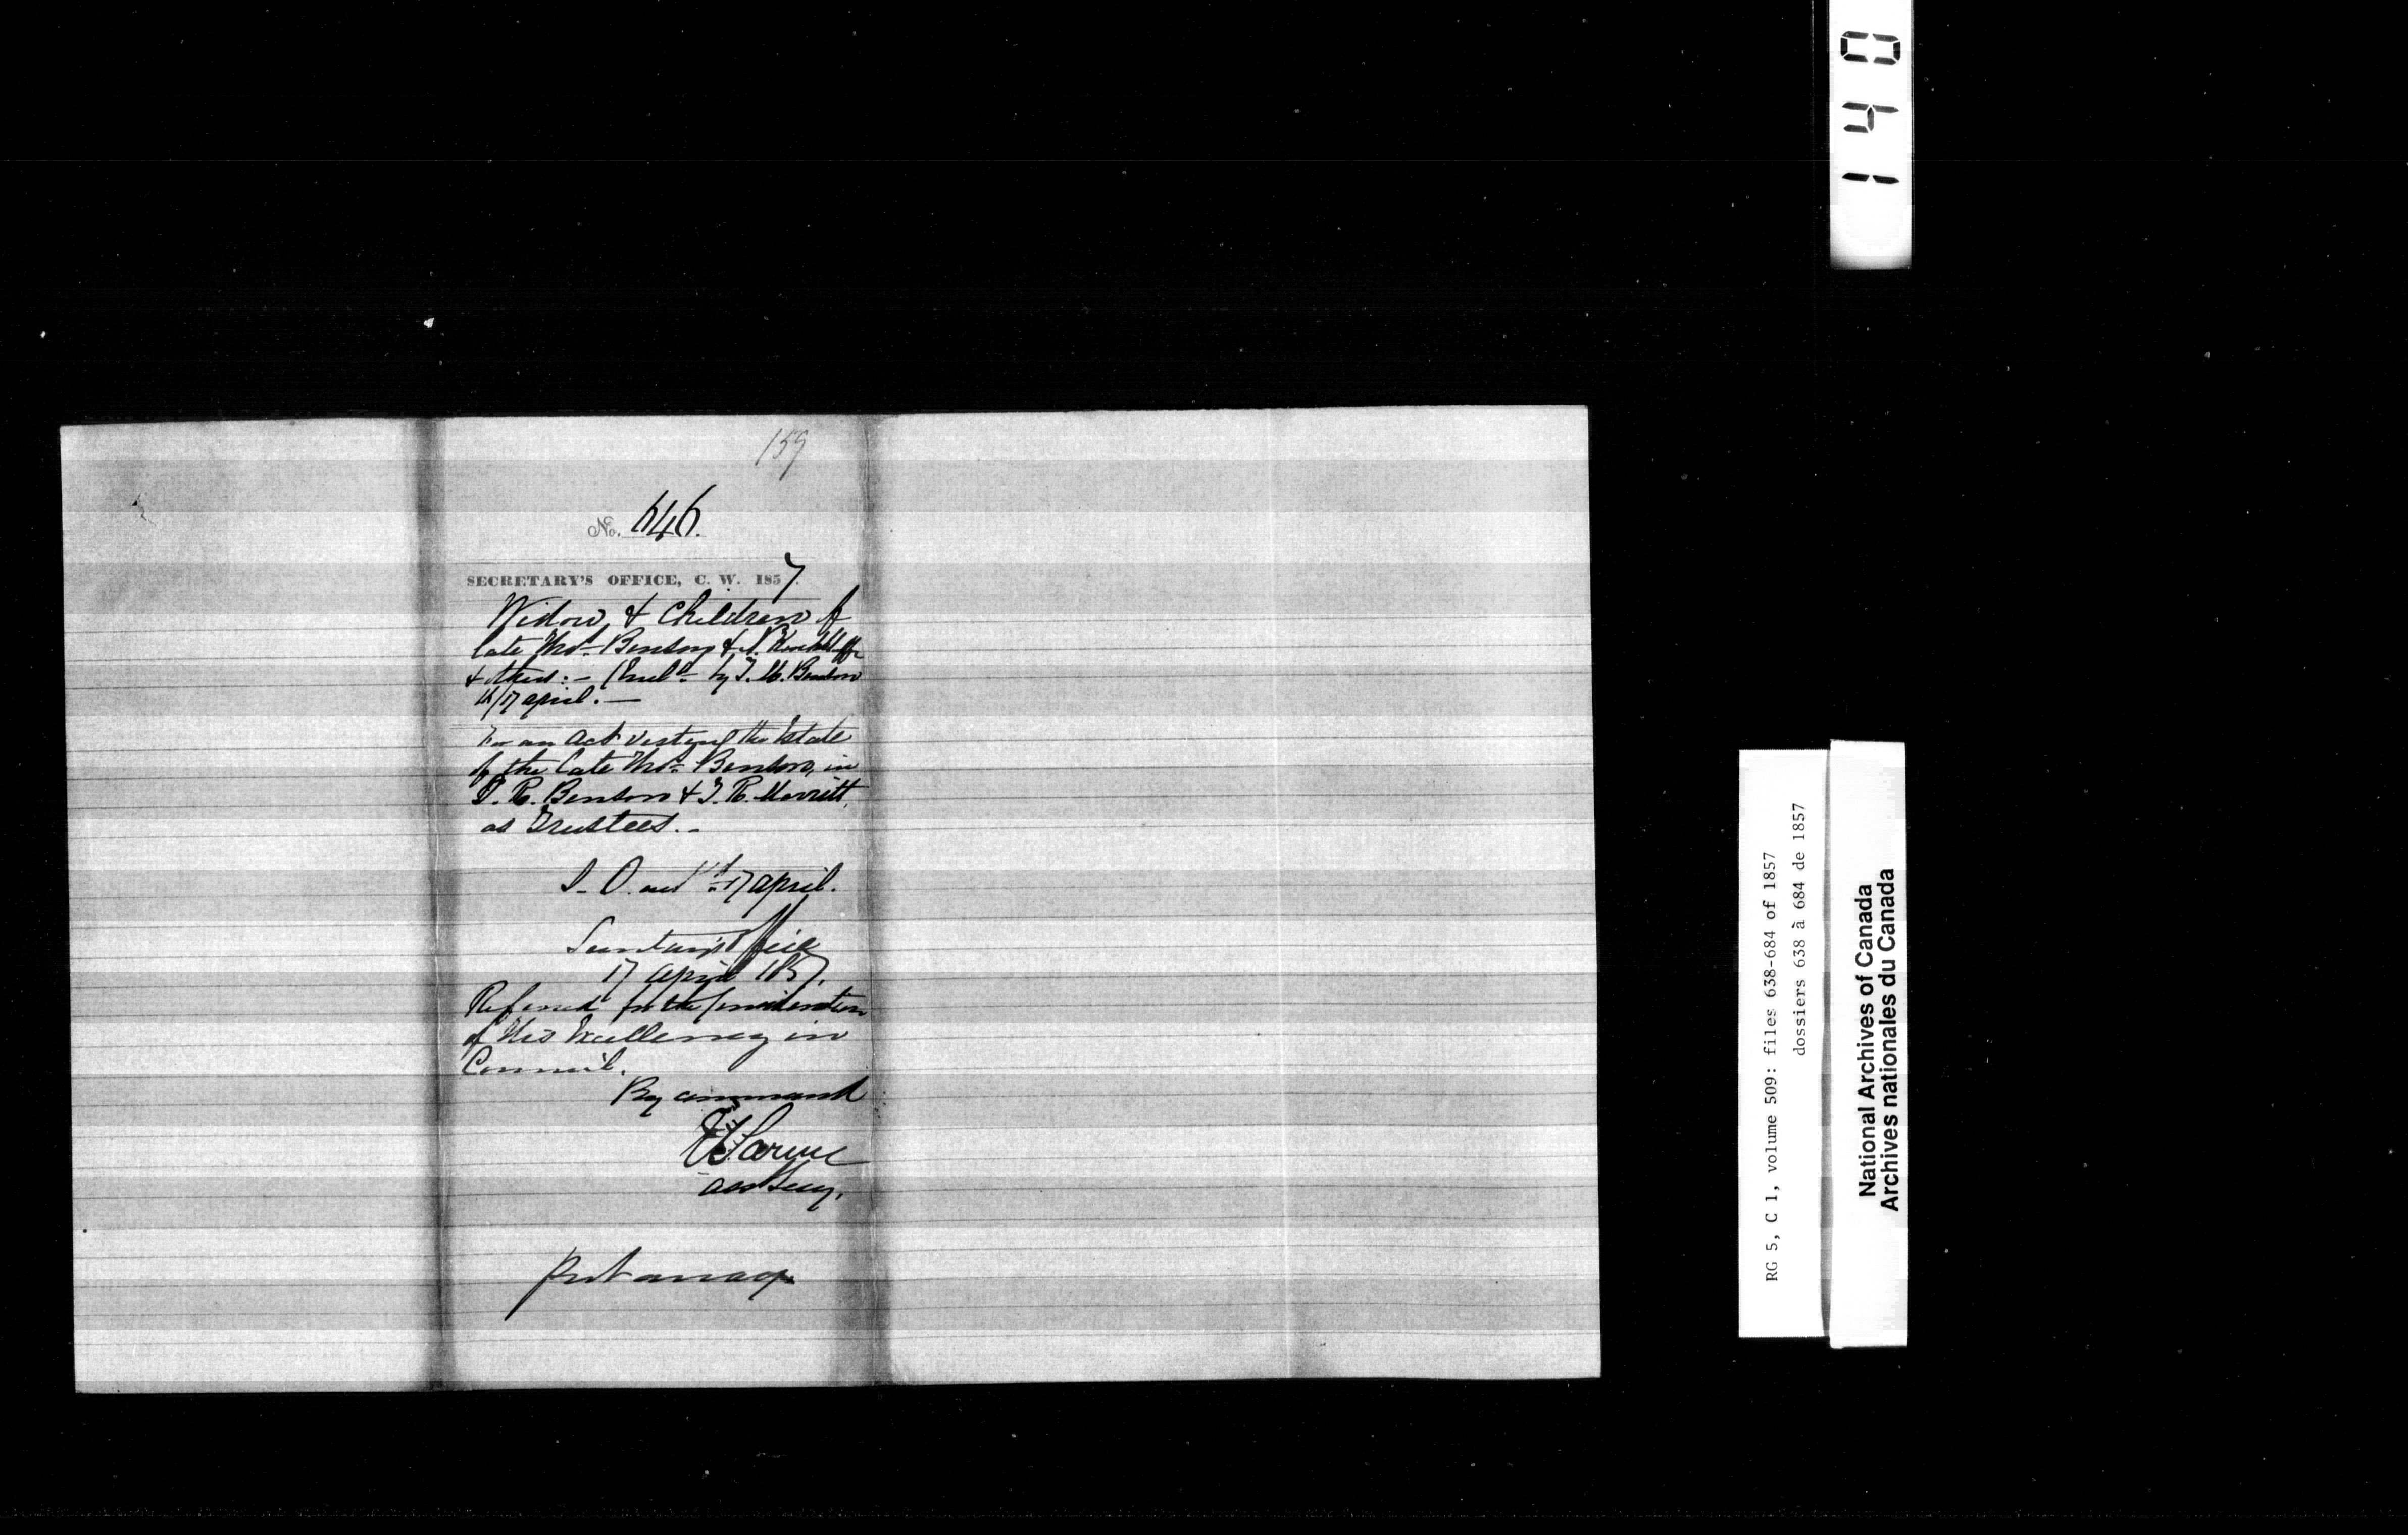 159
No. 646.
SECRETARY'S OFFICE, C. W. 1857.
Widow & Children of
late Thos. Benson &
& others:- (Encld. by T. M. Benson
16/17 april.-
For an Act vesting the Estate
of the late Thos. Benson, in
J. R. Benson & T. R. Merritt,
as Trustees.-
17 april.
Secretary's Office
17 April 1857.
Referred for the Consideration
of His Excellency in
Council.
By command
Asst Secy.
Put away
140
RG 5, C 1, volume 509: files 638-684 of 1857
dossiers 638 à 684 de 1857
National Archives of Canada
Archives nationales du Canada